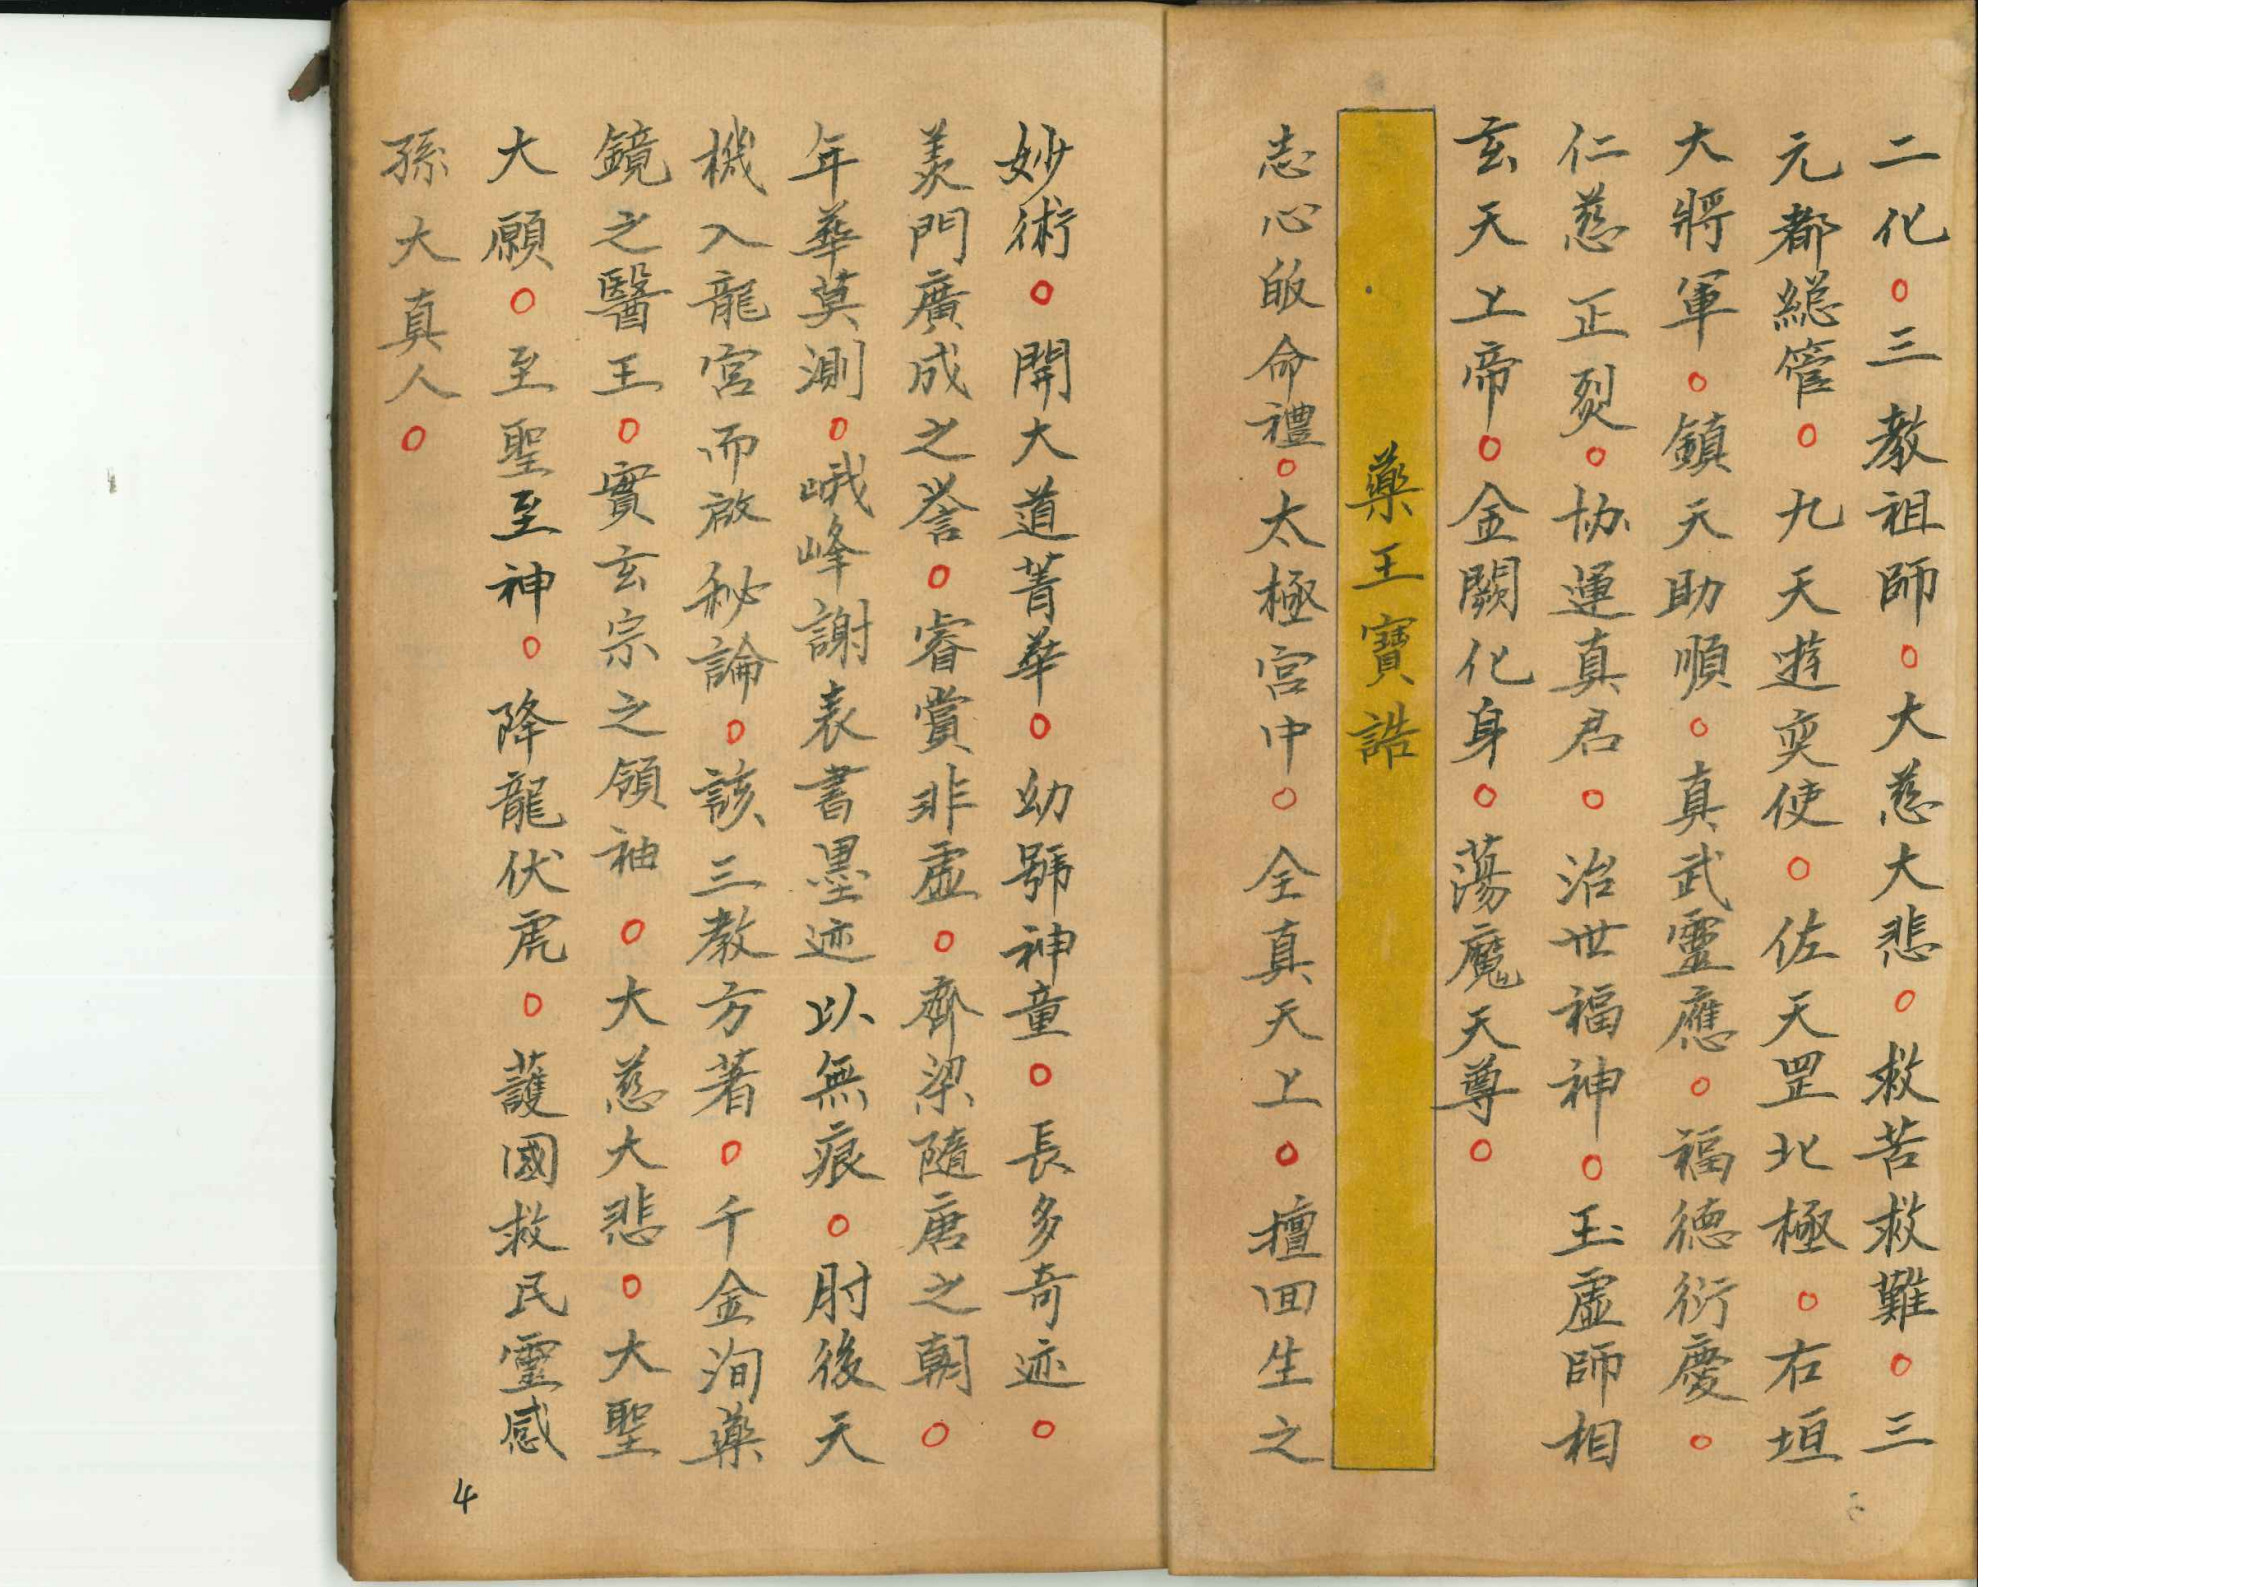 二化○三教祖師○大慈大悲○救苦救難○三
元都總管○九天遊奕使○佐天罡北極○右垣
大將軍○鎮天助順○真武靈應○福德衍慶○
仁慈正烈○協運真君○治世福神○玉虛師相
玄天上帝○金闕化身○蕩魔天尊○
藥王寶誥
志心皈命禮○太極宮中○全真天上○擅回生之
妙術○開大道菁華○幼號神童○長多奇迹○
羨門廣成之誉○睿賞非虛○齊梁隨唐之朝○
年華莫測○峨峰謝表書墨迹以無痕○肘後天
機入龍宮而啟秘論○該三教方著○千金洞藥
鏡之醫王○實玄宗之領袖○大慈大悲○大聖
大願○至聖至神○降龍伏虎○護國救民靈感
孫大真人○
4